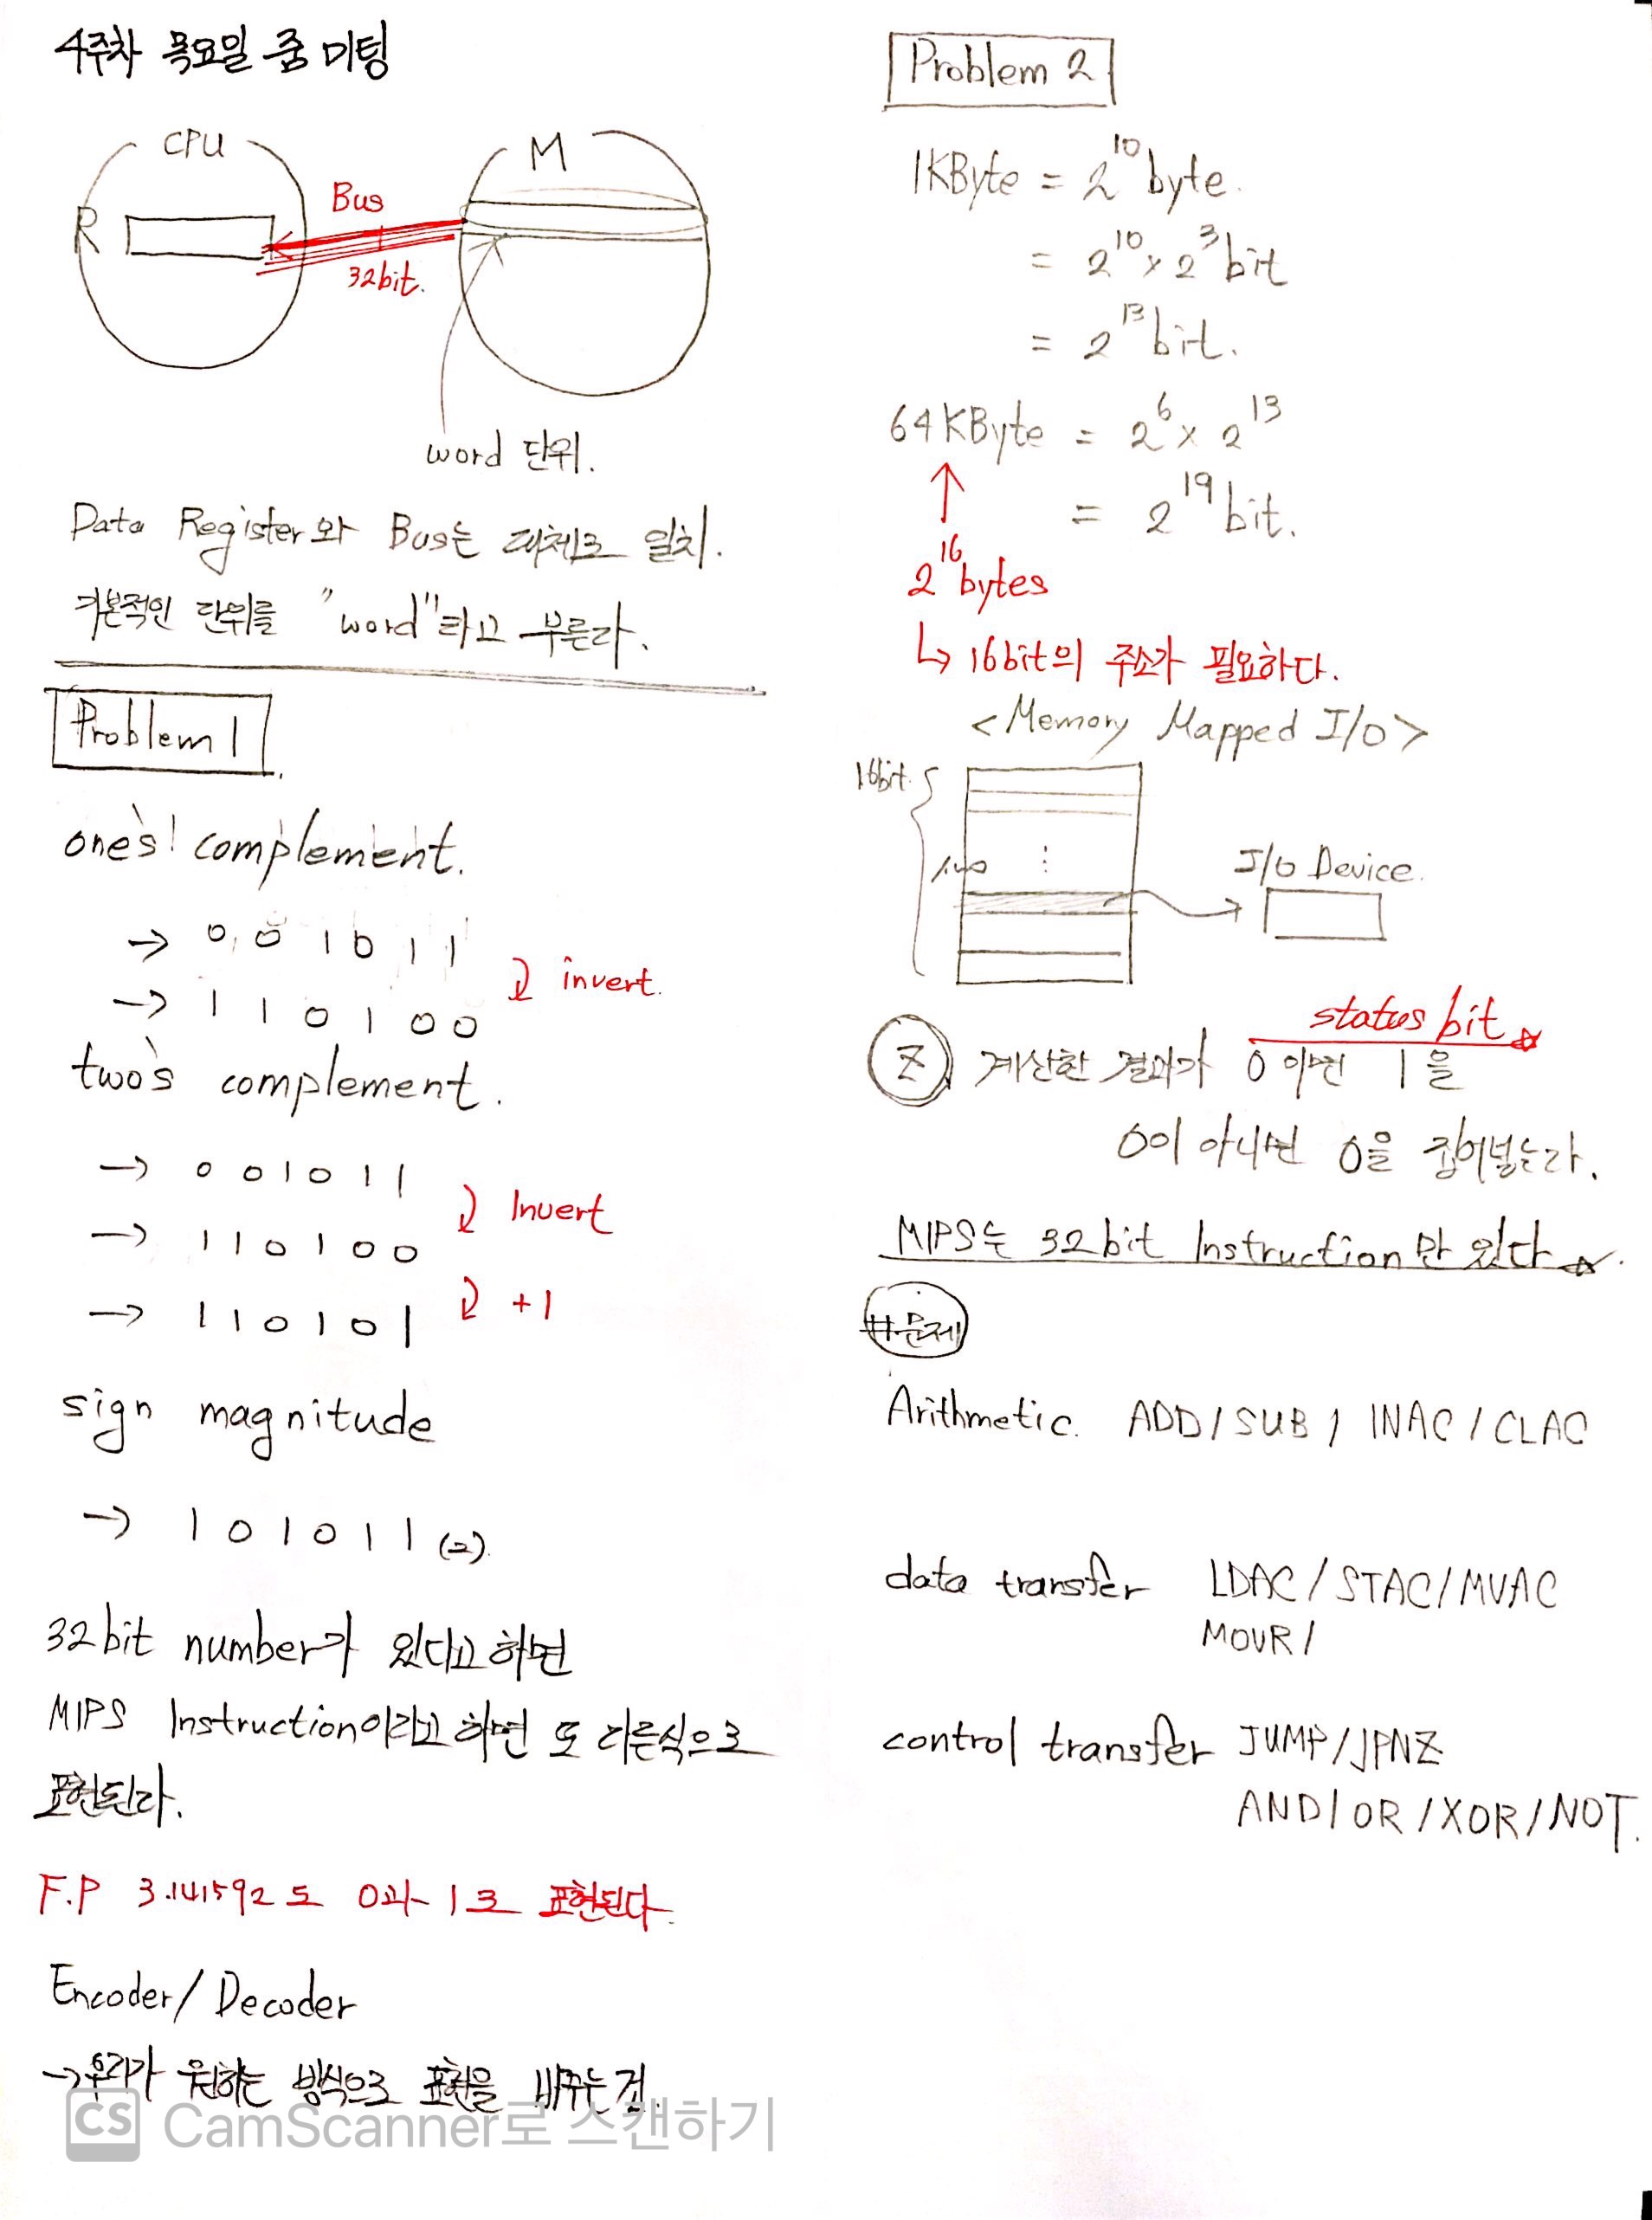 4주차 목요일 줌 미팅
CPU
M
R
Bus
32bit.
word 단위.
Data Register와 Bus는 대체로 일치.
기본적인 단위를 "word"라고 부른다.
Problem 1
one's complement.
→ 0 0 1 0 1 1
invert.
→ 1 1 0 1 0 0
two's complement.
→ 0 0 1 0 1 1
Invert
→ 1 1 0 1 0 0
+1
→ 1 1 0 1 0 1
sign magnitude
→ 1 0 1 0 1 1 (2)
32bit number가 있다고 하면
MIPS Instruction이라고 하면 또 다른식으로
표현된다.
F.P 3.141592도 0과 1로 표현된다.
Encoder/Decoder
→ 우리가 원하는 방식으로 표현을 바꾸는 것.
CS CamScanner로 스캔하기
Problem 2
1KByte = 2^10 byte.
= 2^10 × 2^3 bit
= 2^13 bit.
64KByte = 2^6 × 2^13
= 2^19 bit.
↑
2^16 bytes
↳ 16bit의 주소가 필요하다.
<Memory Mapped I/O>
16bit.
I/O Device.
status bit ☆
Z 계산한 결과가 0이면 1을
0이 아니면 0을 집어넣는다.
MIPS는 32bit Instruction만 있다 ☆.
#문제
Arithmetic. ADD/SUB/INAC/CLAC
data transfer LDAC/STAC/MVAC
MOVR/
control transfer JUMP/JPNZ
AND/OR/XOR/NOT.